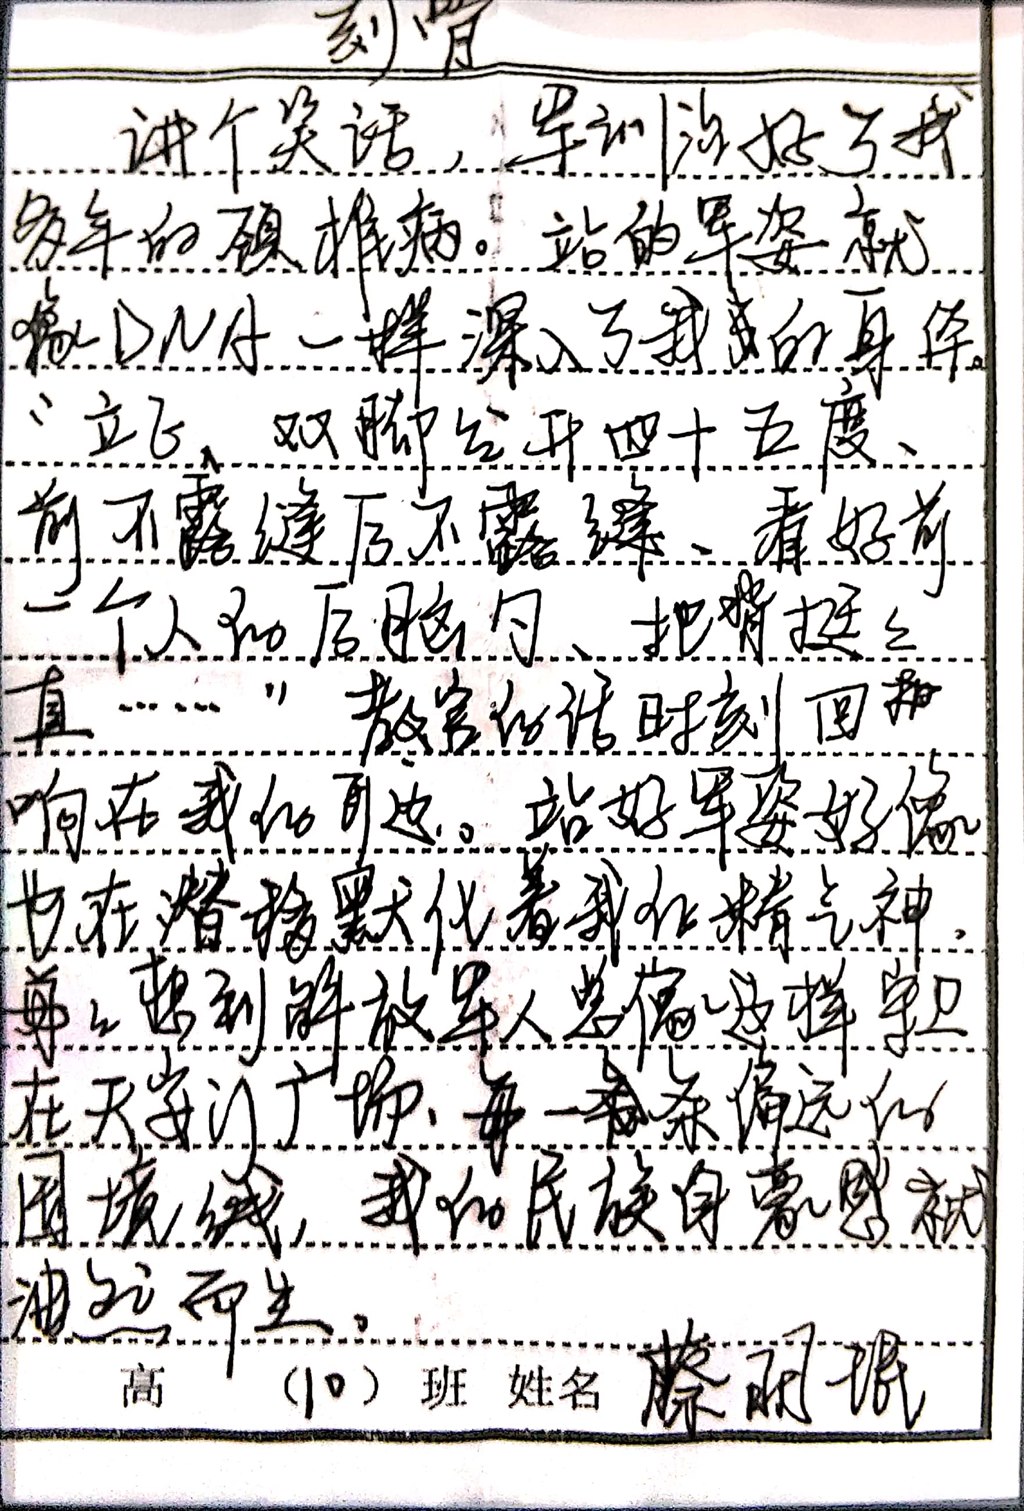 刻骨
讲个笑话，军训治好了我
多年的颈椎病。站的军姿就
像DNA一样深入了我的身体。
"立正、双脚分开四十五度、
前不露缝后不露缝、看好前
一个人的后脑勺、把背挺
直……"教官的话时刻回
响在我的耳边。站好军姿好像
也在潜移默化着我的精气神.
每每想到解放军人总像这样守卫
在天安门广场、每一条偏远的
国境线，我的民族自豪感就
油然而生。
高 （10）班 姓名